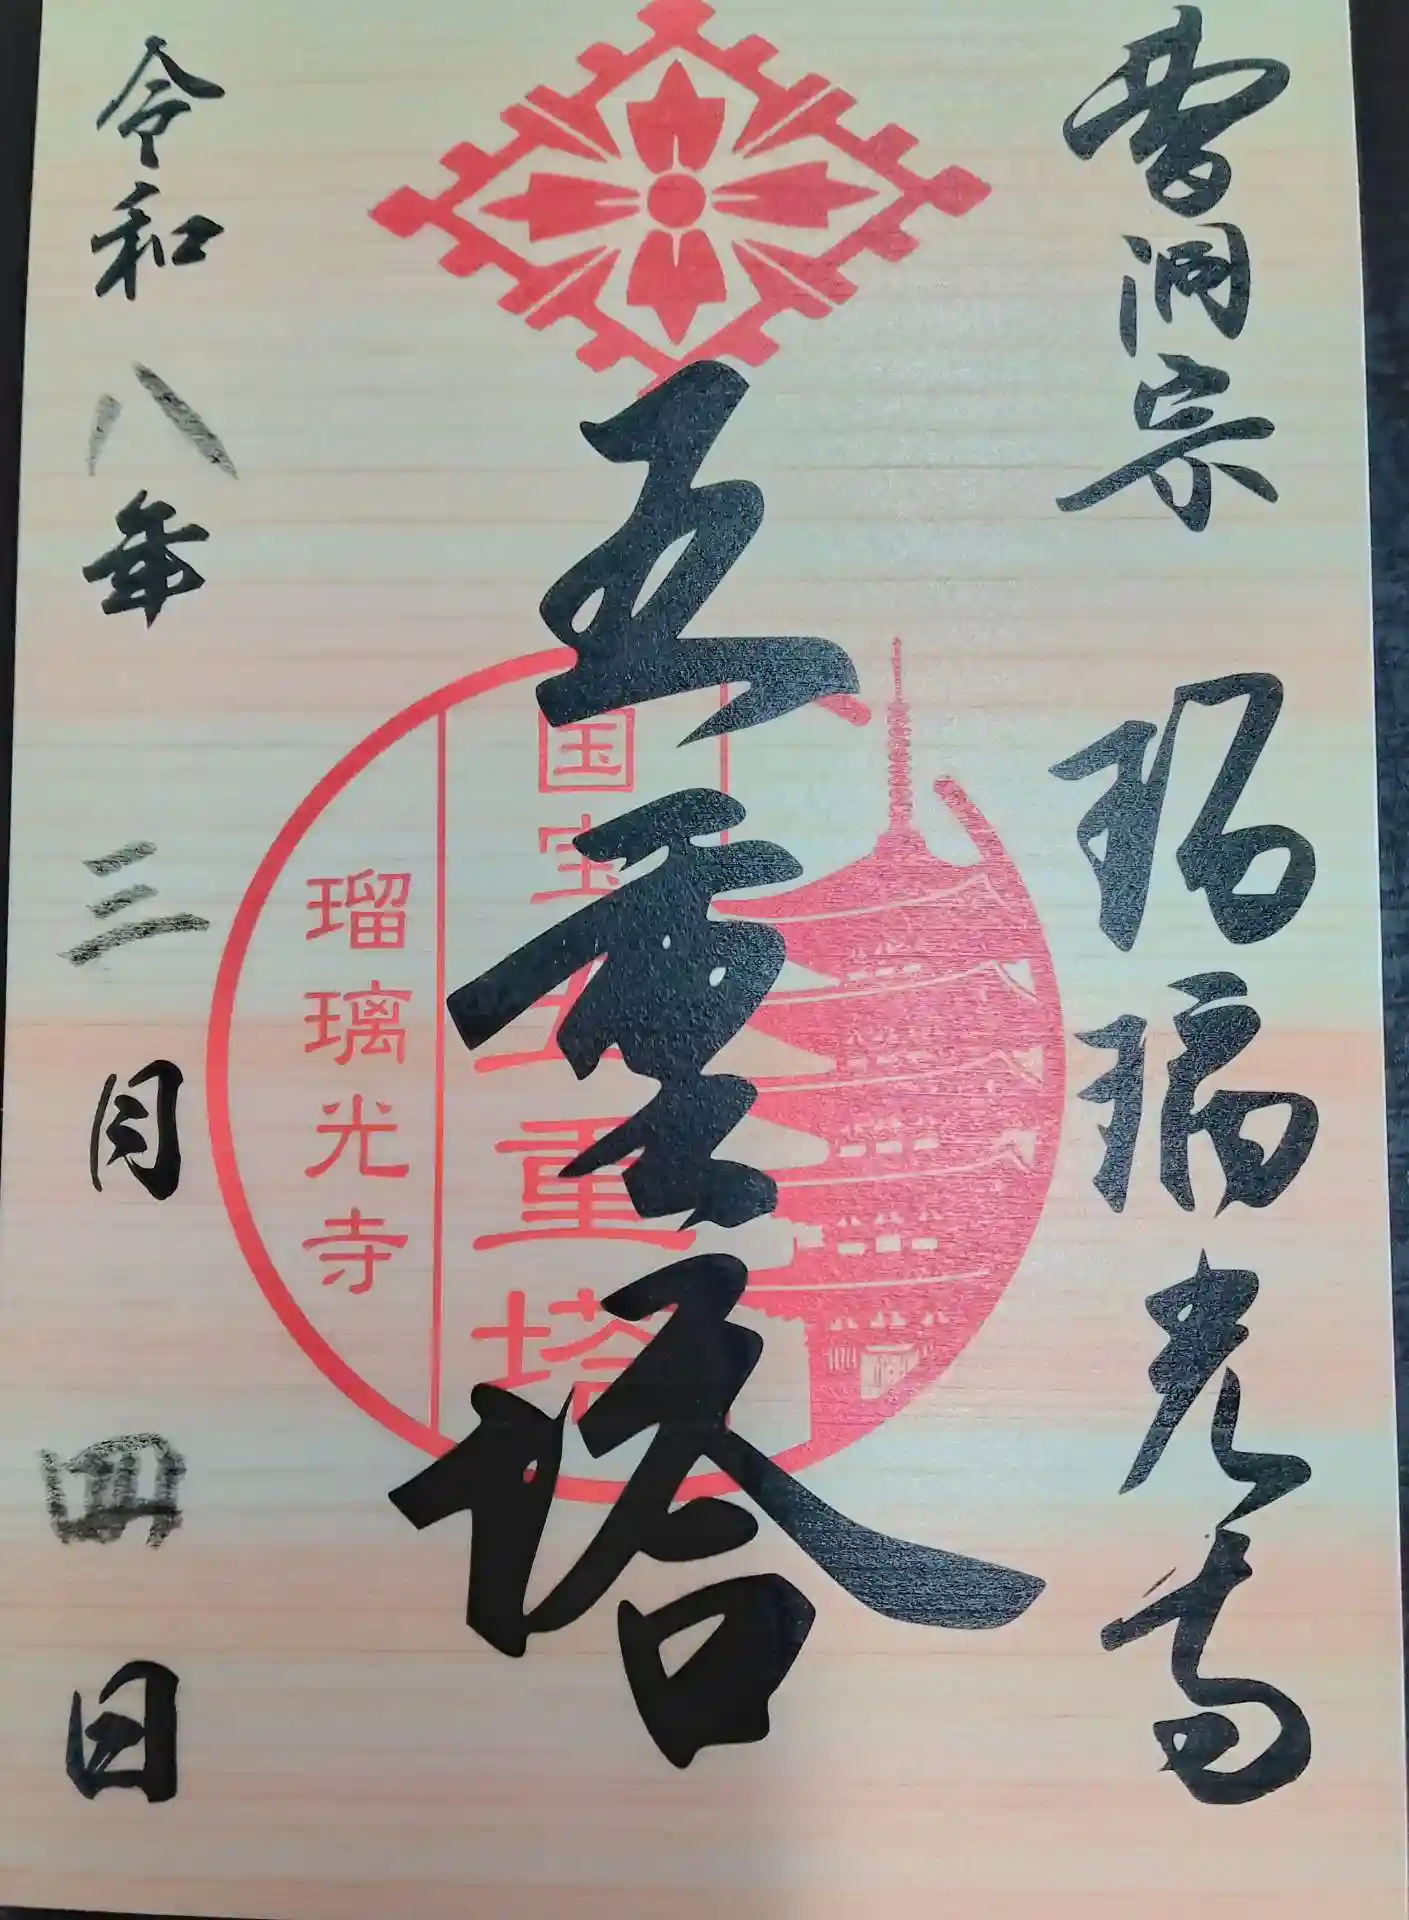 曹洞宗 瑠璃光寺
五重塔
国宝五重塔
瑠璃光寺
令和八年三月四日